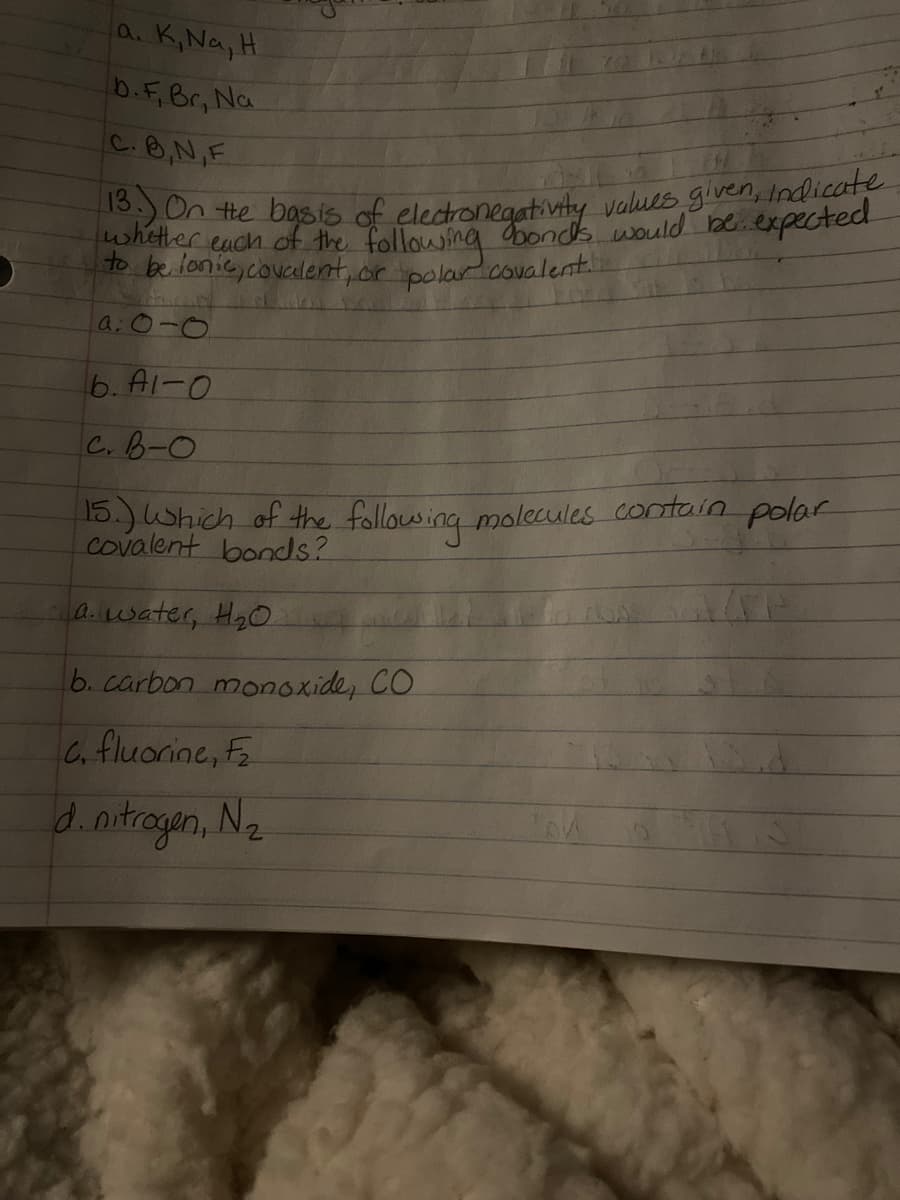 a. K, Na, H
b. F, Br, Na
C. B, N, F
13.) On the basis of electronegativity values given, indicate
whether each of the following bonds would be expected
to be ionic, covalent, or polar covalent.
a. O-O
b. Al-O
C. B-O
15.) Which of the following molecules contain polar
covalent bonds?
a. water, H₂O
b. carbon monoxide, CO
c. fluorine, F₂
d. nitrogen, N₂